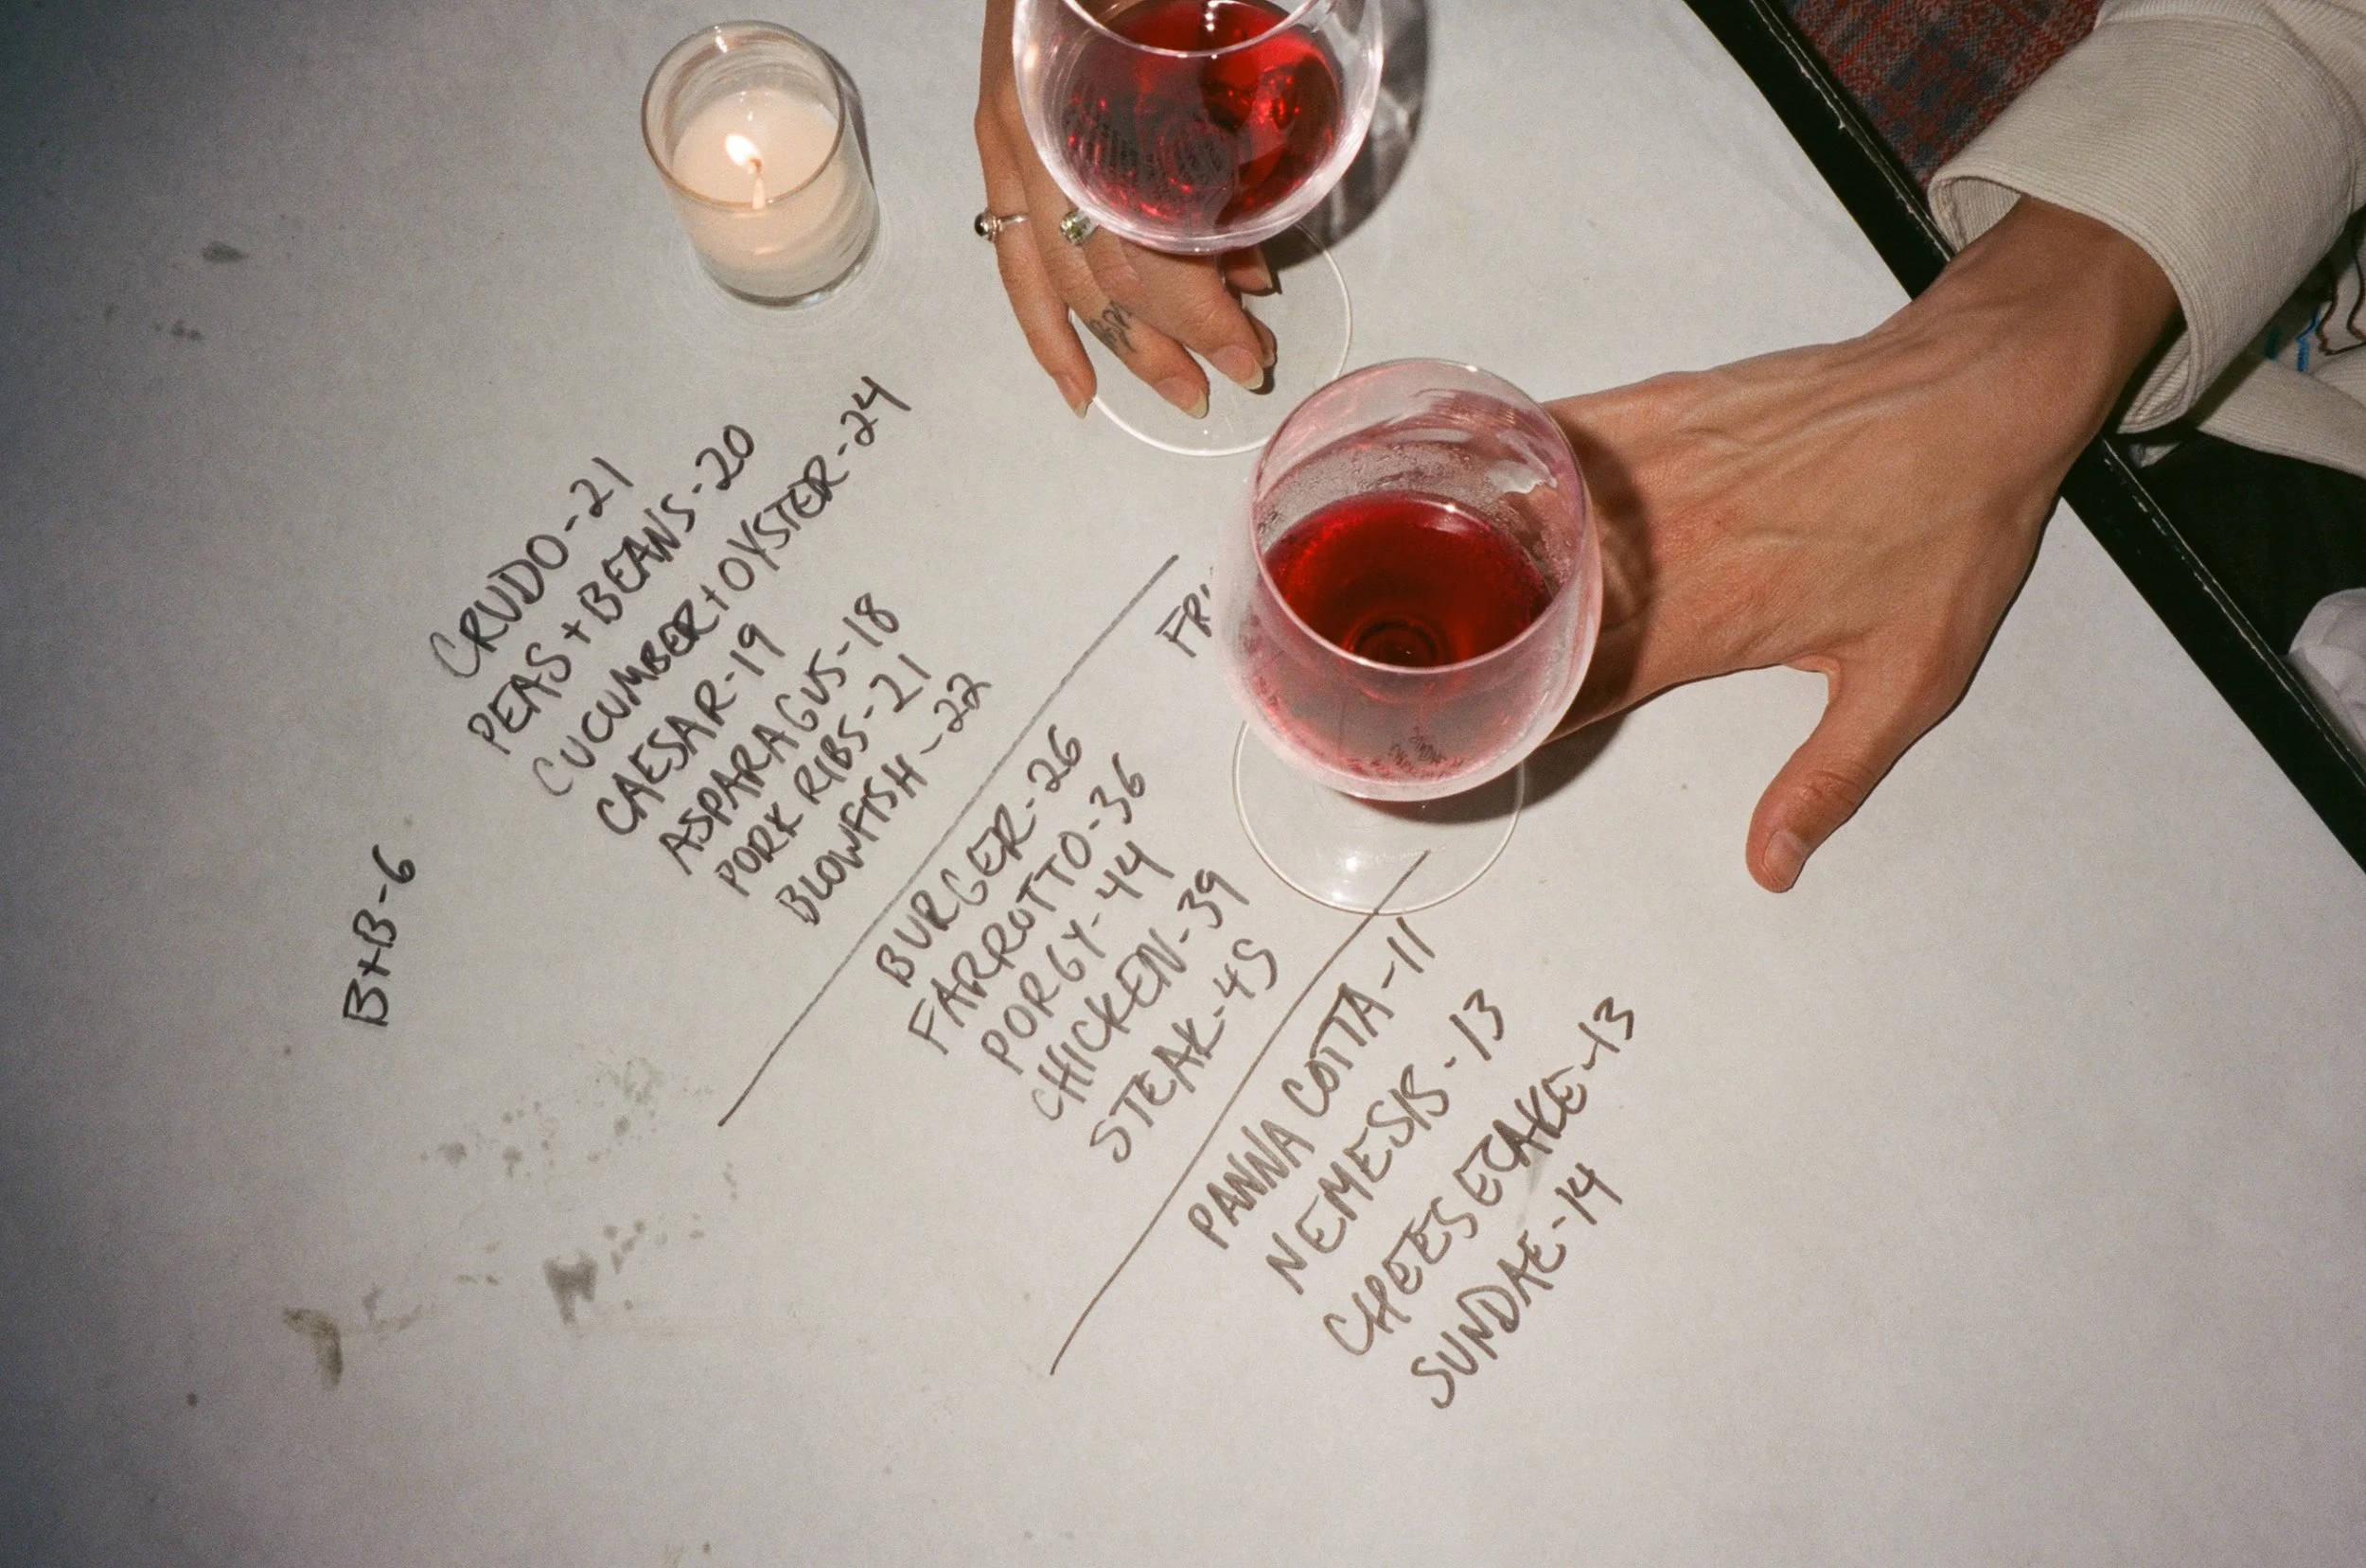 B+B-6
CRUDO-21
PEAS+BEANS-20
CUCUMBER+OYSTER-24
CAESAR-19
ASPARAGUS-18
PORK RIBS-21
BLOWFISH-22
BURGER-26
FARROTTO-36
PORGY-44
CHICKEN-39
STEAK-45
PANNA COTTA-11
NEMESIS-13
CHEESECAKE-13
SUNDAE-14